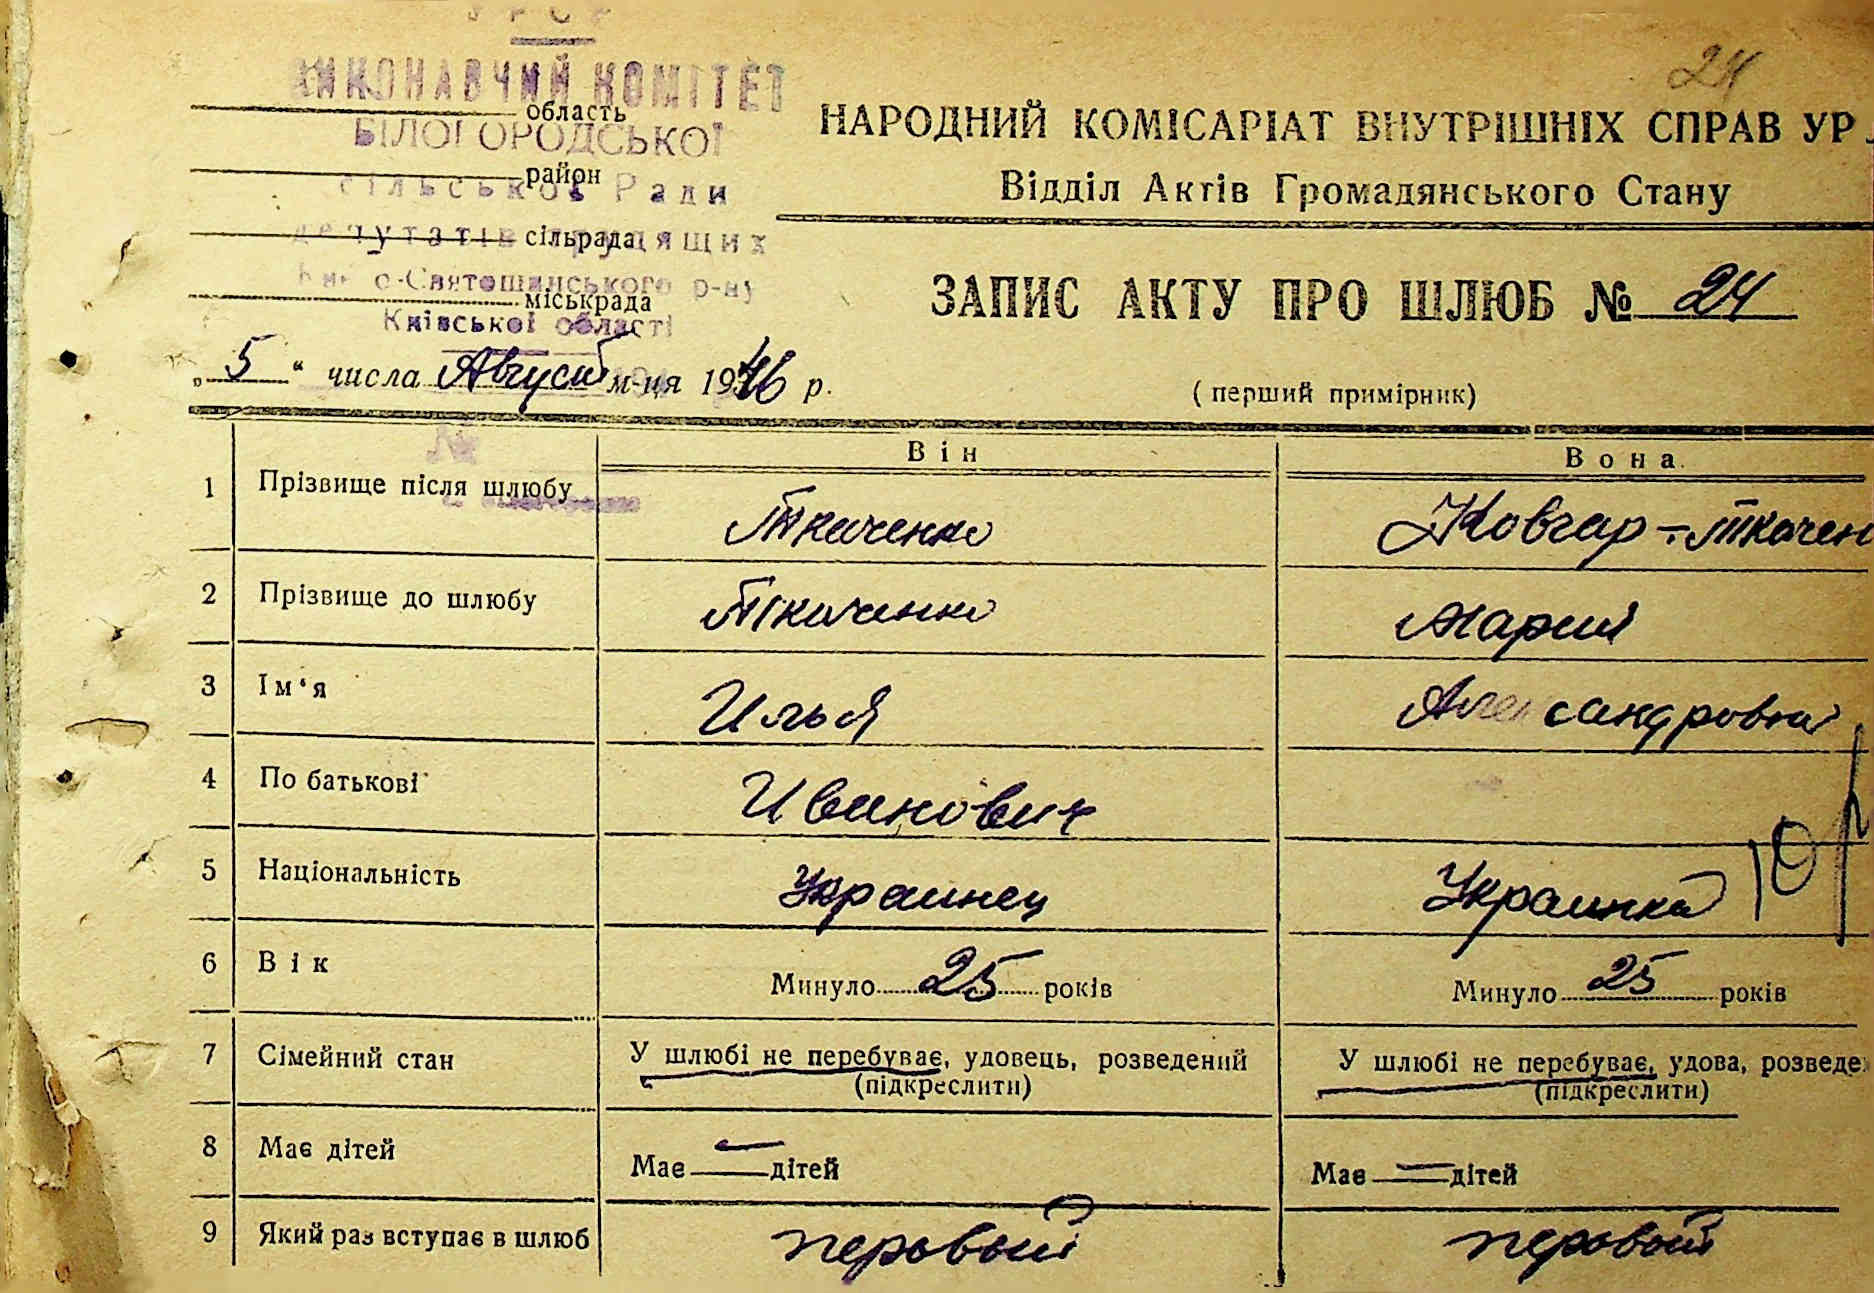 УРСР
ВИКОНАВЧИЙ КОМІТЕТ
область
БІЛОГОРОДСЬКОЇ
район
сільської Ради
сільрада
депутатів трудящих
Киє о-Святошинського р-ну
міськрада
Київської області
24
НАРОДНИЙ КОМІСАРІАТ ВНУТРІШНІХ СПРАВ УР
Відділ Актів Громадянського Стану
ЗАПИС АКТУ ПРО ШЛЮБ № 24
„ 5 “ числа Август м-ця 1946 р.
( перший примірник)
№
Він Вона
1 Прізвище після шлюбу Ткаченко Ковгар-Ткачен
2 Прізвище до шлюбу Ткаченко Мария
3 Ім‘я Илья Александровна
4 По батькові Иванович
5 Національність Украинец Украинка
10
6 Вік Минуло 25 років Минуло 25 років
7 Сімейний стан У шлюбі не перебуває, удовець, розведений У шлюбі не перебуває, удова, розведе
(підкреслити) (підкреслити)
8 Має дітей Має — дітей Має — дітей
9 Який раз вступає в шлюб первый первый